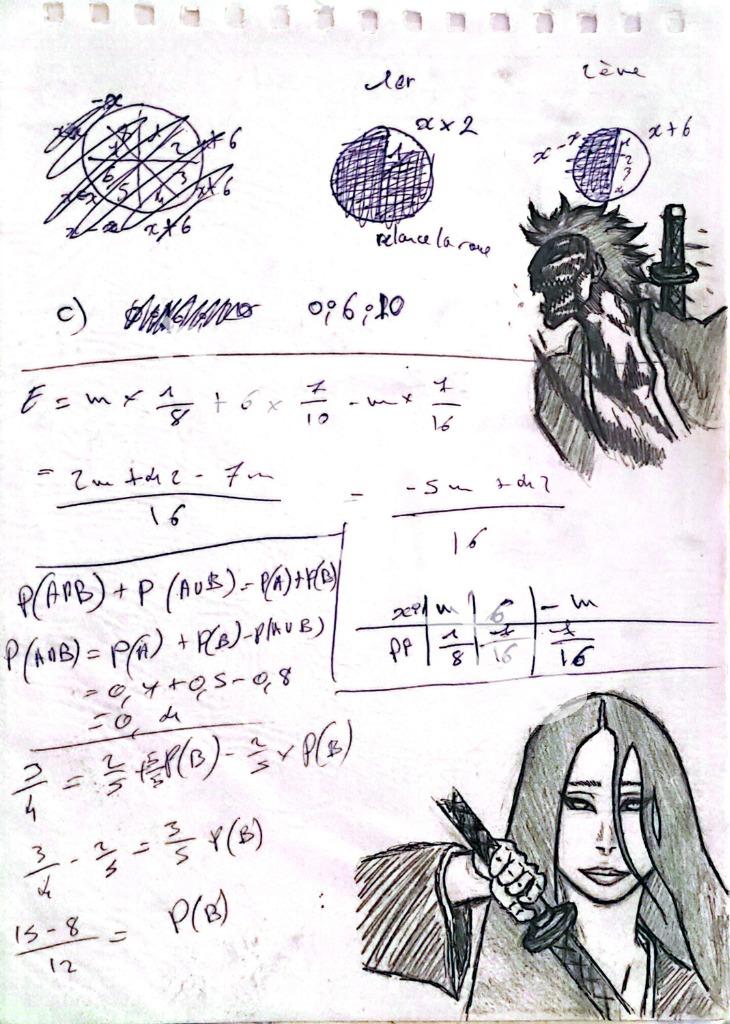 1er
2ème
-x
1
2
3
4
5
6
x+6
x+6
x+6
x-x
x × 2
1
relance la roue
x-x
x+6
1
2
3
4
c) 0;6;10
E = m × 1/8 + 6 × 7/10 - m × 7/16
= (2m + 42 - 7m)/16 = (-5m + 42)/16
P(A∩B) + P(A∪B) = P(A) + P(B)
P(A∩B) = P(A) + P(B) - P(A∪B)
= 0,4 + 0,5 - 0,8
= 0,1
xi | m | 6 | -m
1/8 | 7/16 | 7/16
3/4 = 2/5 + 5/5 P(B) - 2/5 × P(B)
3/4 - 2/5 = 3/5 P(B)
(15-8)/12 = P(B)